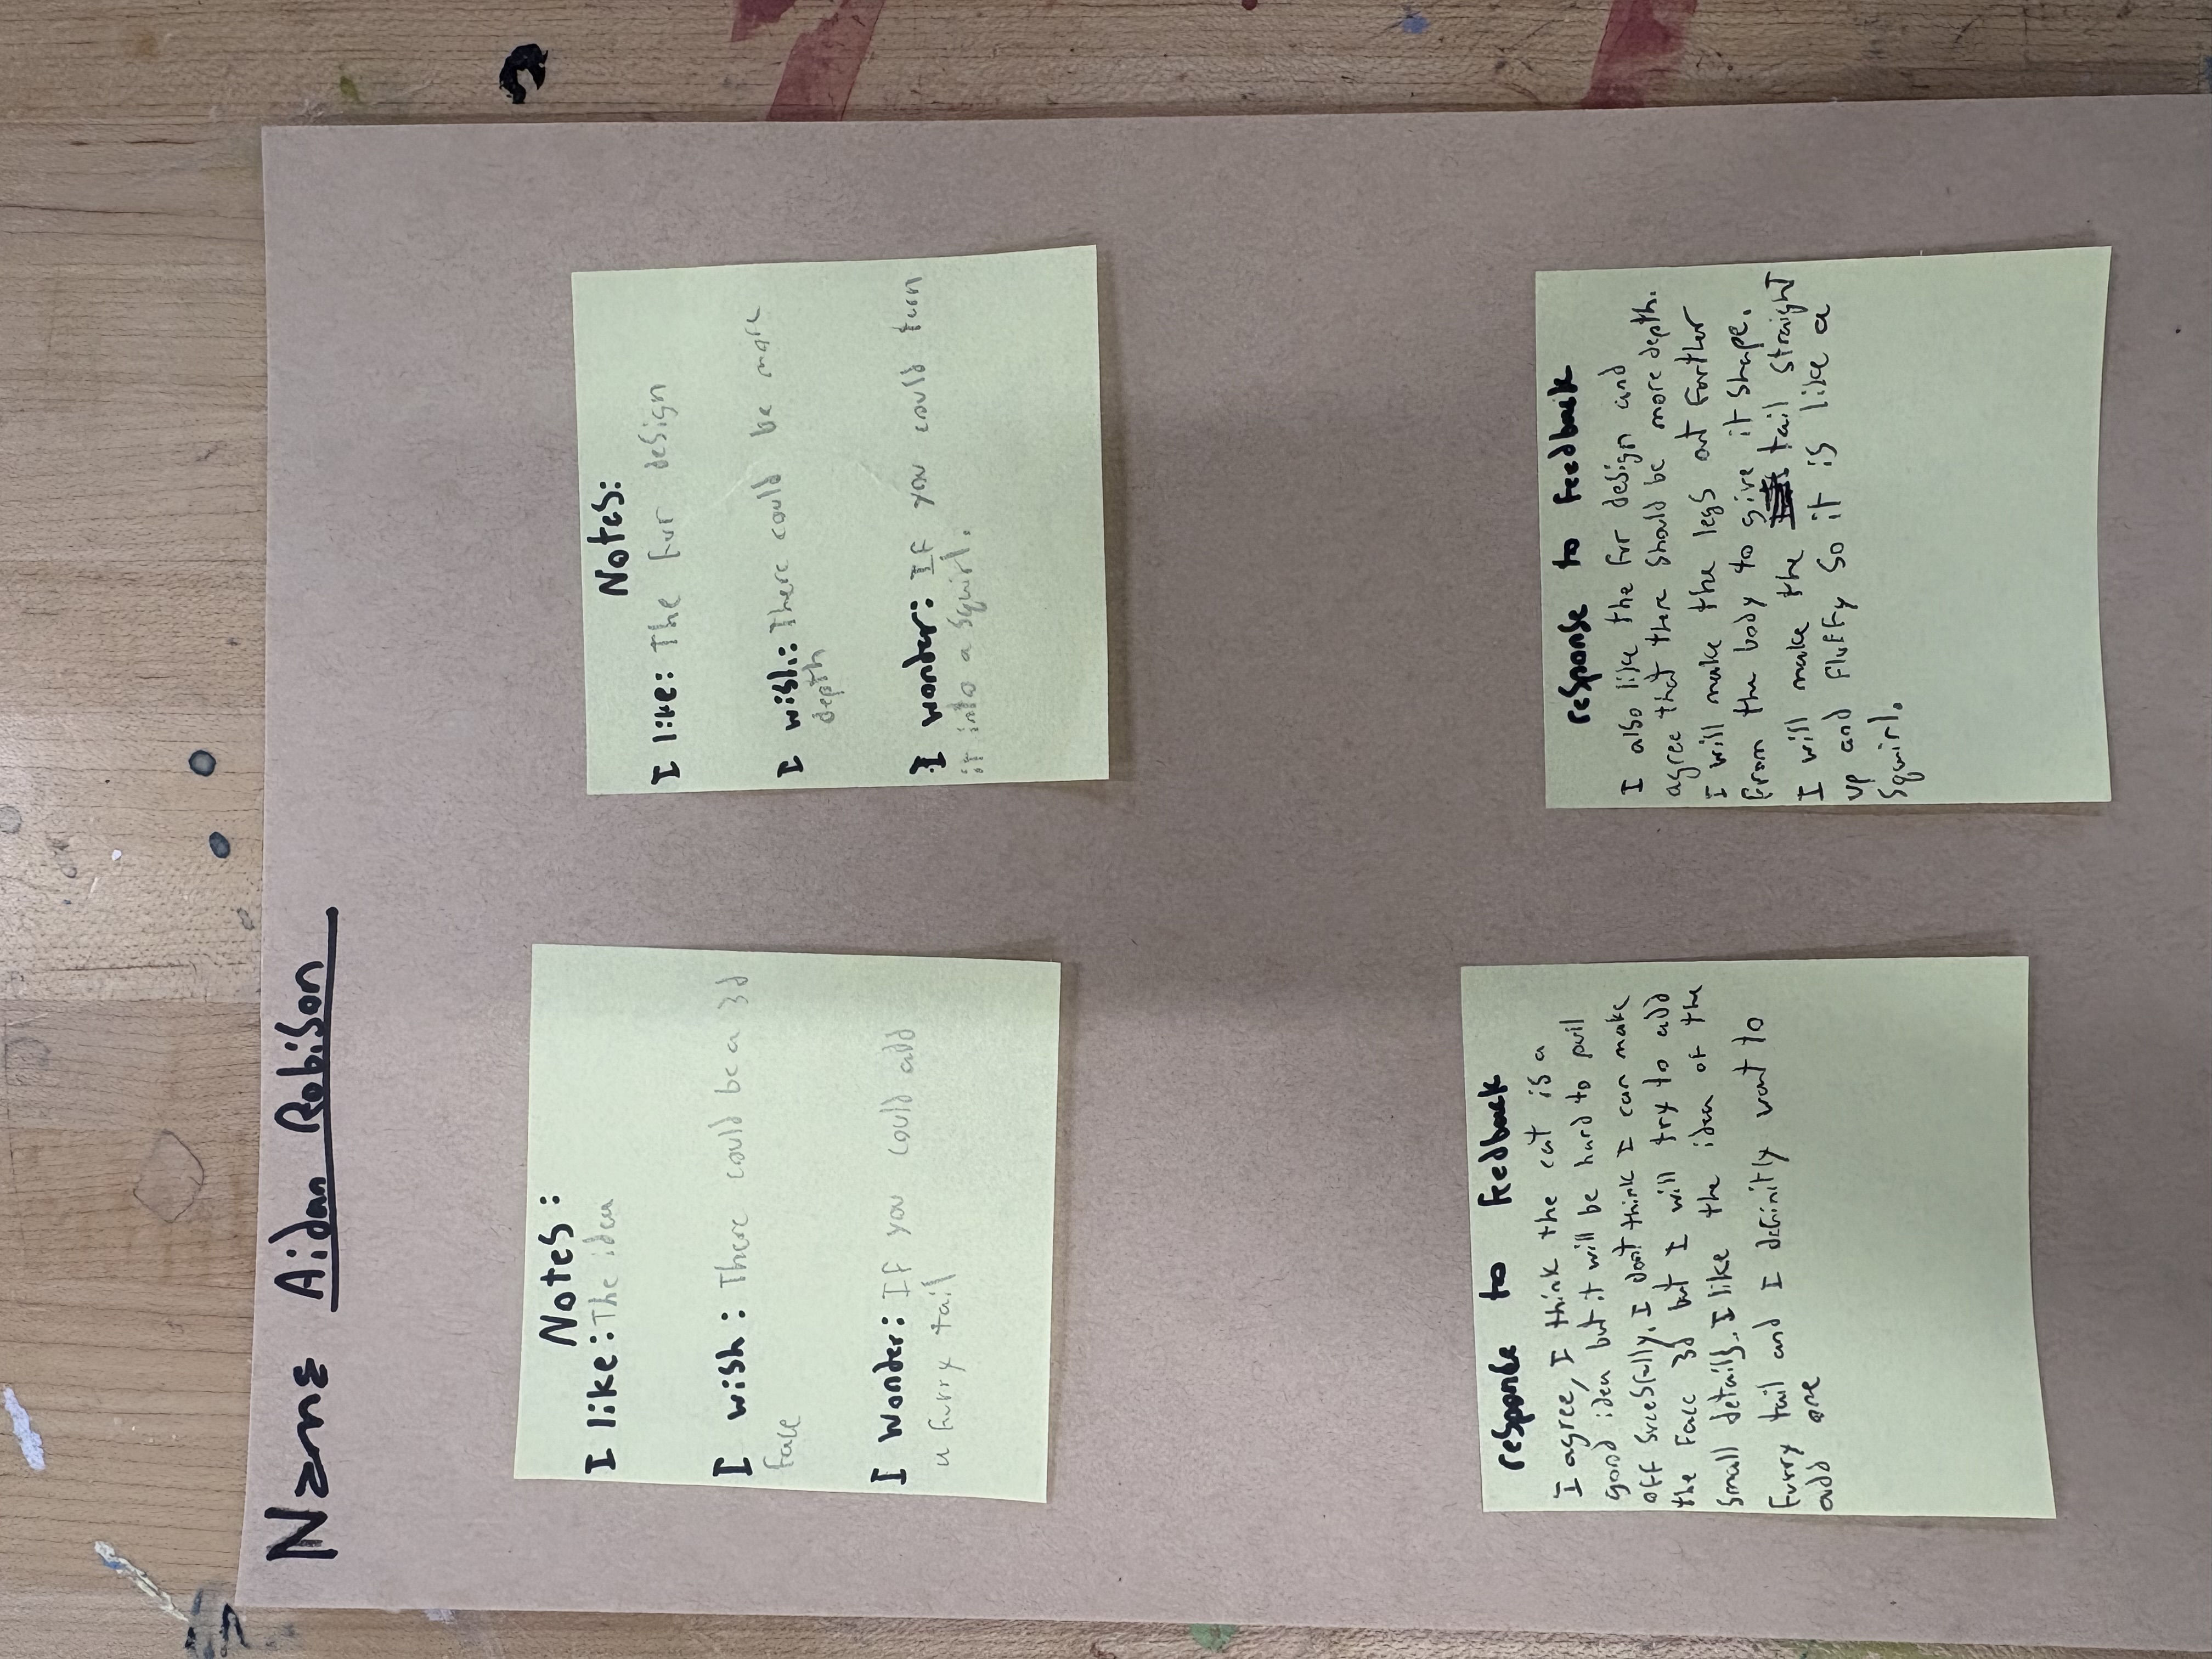 Name Aidan Robison
Notes:
I like: The idea
I wish: There could be a 3d
face
I wonder: If you could add
a furry tail
Notes:
I like: The fur design
I wish: There could be more
depth
I wonder: If you could turn
it into a squirl.
response to feedback
I agree, I think the cat is a
good idea but it will be hard to pull
off srcesfully. I dont think I can make
the face 3d but I will try to add
small details. I like the idea of the
furry tail and I definitly want to
add one
response to feedback
I also like the fur design and
agree that there should be more depth.
I will make the legs out farther
from the body to give it shape.
I will make the tail straight
up and fluffy so it is like a
squirl.